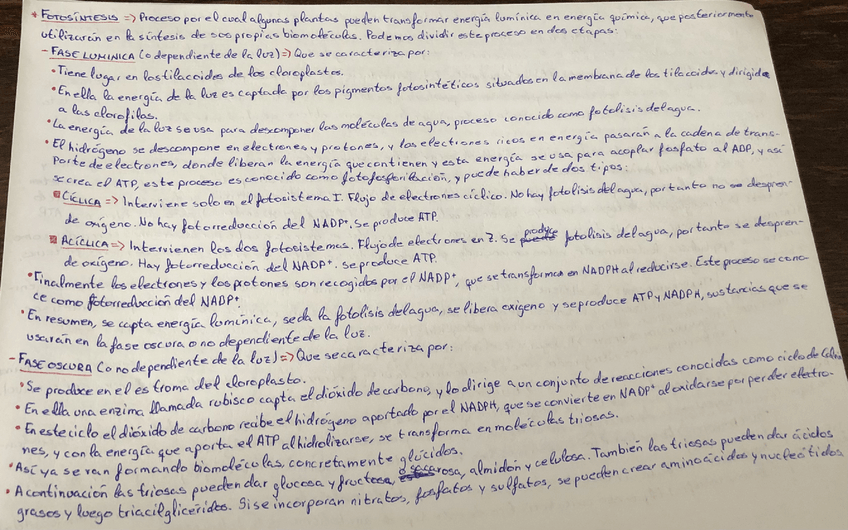 • FOTOSÍNTESIS => Proceso por el cual algunas plantas pueden transformar energía lumínica en energía química, que posteriormente
utilizarán en la síntesis de sus propias biomoléculas. Podemos dividir este proceso en dos etapas:
- FASE LUMINICA (o dependiente de la luz) => Que se caracteriza por:
• Tiene lugar en los tilacoides de los cloroplastos.
• En ella la energía de la luz es captada por los pigmentos fotosintéticos situados en la membrana de los tilacoides y dirigida
a las clorofilas.
• La energía de la luz se usa para descomponer las moléculas de agua, proceso conocido como fotolisis del agua.
• El hidrógeno se descompone en electrones y protones, y los electrones ricos en energía pasarán a la cadena de trans-
porte de electrones, donde liberan la energía que contienen y esta energía se usa para acoplar fosfato al ADP, y así
se crea el ATP, este proceso es conocido como fotofosforilación, y puede haber de dos tipos:
CÍCLICA => Interviene solo en el fotosistema I. Flujo de electrones cíclico. No hay fotolisis del agua, por tanto no se despren-
de oxígeno. No hay fotorreducción del NADP⁺. Se produce ATP.
ACÍCLICA => Intervienen los dos fotosistemas. Flujo de electrones en Z. Se produce fotolisis del agua, por tanto se despren-
de oxígeno. Hay fotorreducción del NADP⁺. Se produce ATP.
• Finalmente los electrones y los protones son recogidos por el NADP⁺, que se transforma en NADPH al reducirse. Este proceso se cono-
ce como fotorreducción del NADP⁺.
• En resumen, se capta energía lumínica, se da la fotolisis del agua, se libera oxígeno y se produce ATP y NADPH, sustancias que se
usarán en la fase oscura o no dependiente de la luz.
- FASE OSCURA (o no dependiente de la luz) => Que se caracteriza por:
• Se produce en el estroma del cloroplasto.
• En ella una enzima llamada rubisco capta el dióxido de carbono, y lo dirige a un conjunto de reacciones conocidas como ciclo de Calvin
• En este ciclo el dióxido de carbono recibe el hidrógeno aportado por el NADPH, que se convierte en NADP⁺ al oxidarse por perder electro-
nes, y con la energía que aporta el ATP al hidrolizarse, se transforma en moléculas triosas.
• Así ya se van formando biomoléculas, concretamente glúcidos.
• A continuación las triosas pueden dar glucosa y fructosa, o sacarosa, almidón y celulosa. También las triosas pueden dar ácidos
grasos y luego triacilglicéridos. Si se incorporan nitratos, fosfatos y sulfatos, se pueden crear aminoácidos y nucleótidos